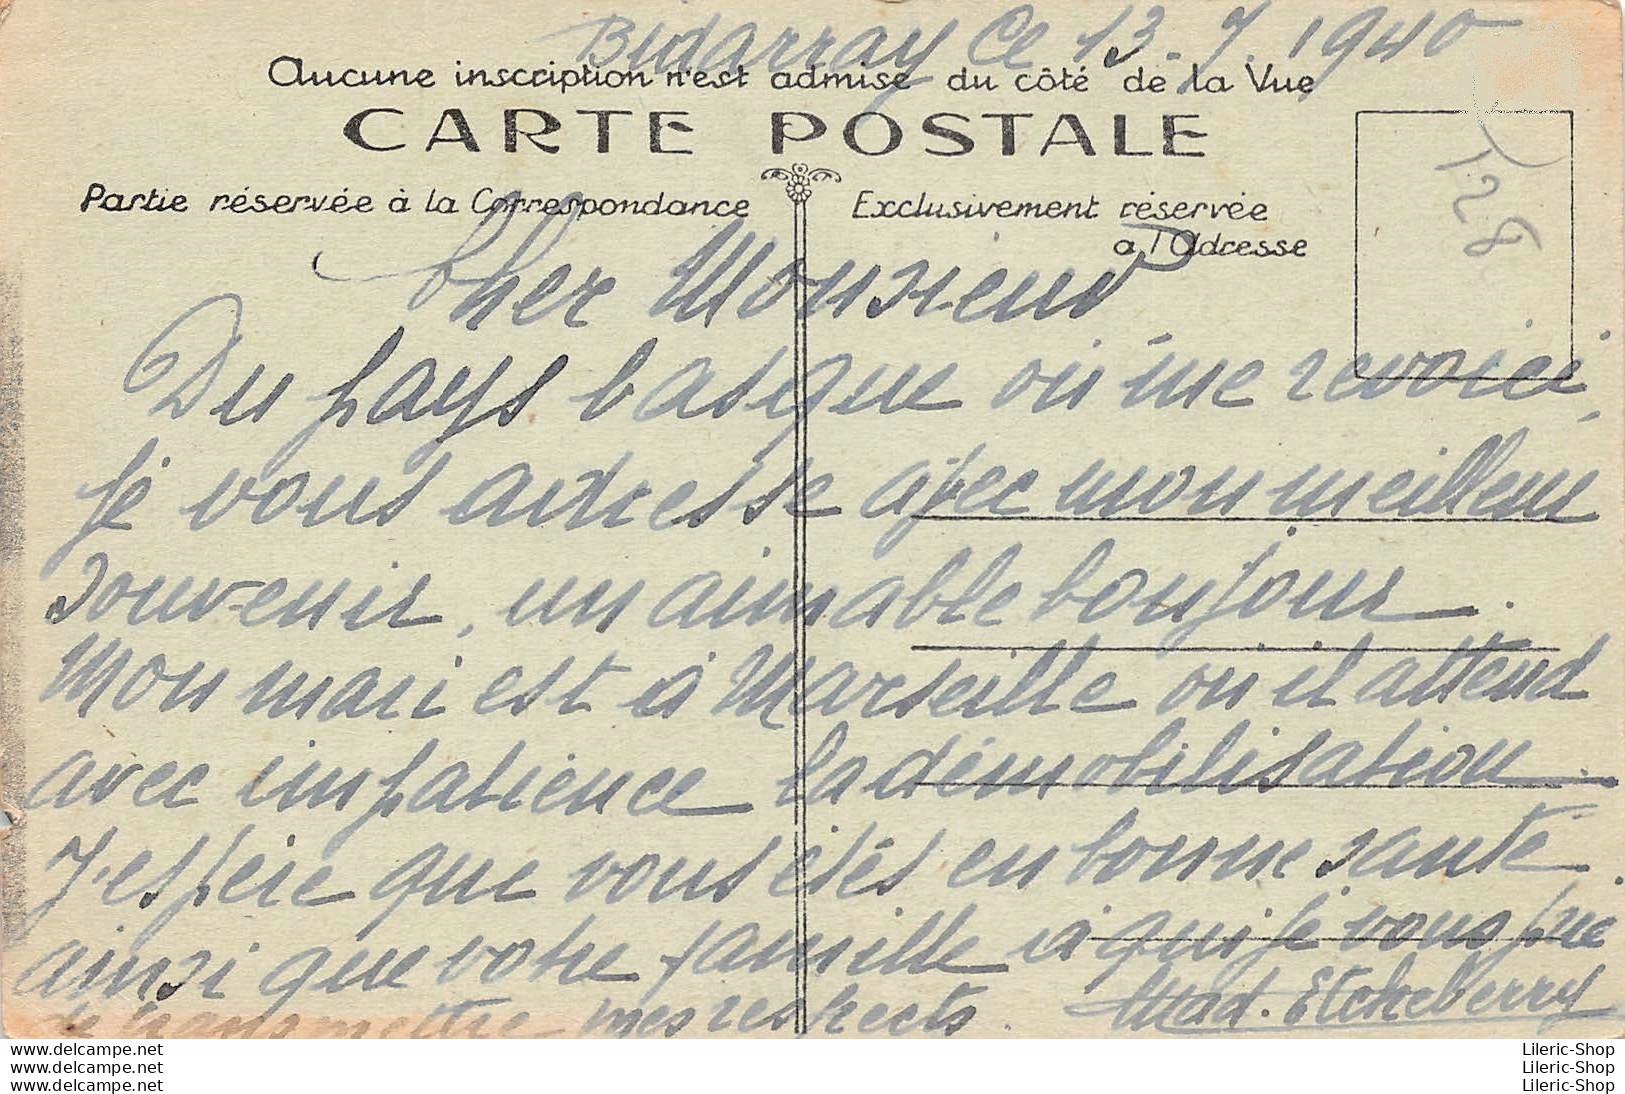 Bidarray Ce 13-7.1940
Aucune inscription n'est admise du côté de la Vue
CARTE POSTALE
Partie réservée à la Correspondance
Exclusivement réservée
a l'Adresse
128
Cher Monsieur
Du pays basque où me revoici,
je vous adresse avec mon meilleur
souvenir, un aimable bonjour.
Mon mari est à Marseille où il attend
avec impatience la démobilisation.
J'espère que vous êtes en bonne santé
ainsi que votre famille à qui je vous prie
de transmettre mes respects. Mad. Etcheberry
www.delcampe.net
www.delcampe.net
www.delcampe.net
Lileric-Shop
Lileric-Shop
Lileric-Shop